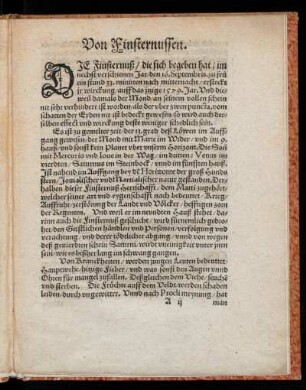 Von Finsternussen.
DIE Finsternuß / die sich begeben hat / im
nechst verschienen Jar. den 16. Septembris. zu frü
ein stund 33. minuten nach mitternacht / erstreckt
jr würckung auff das jtzige 1579. Jar. Vnd die-
weil damals der Mond an seinem vollen schein
nit sehr verhindert ist worden / als der vber 3 vom
schatten der Erden nit ist bedeckt gewesen / so wird auch der-
selben effect vnd würckung deste weniger schedlich sein.
Es ist zu gemelter zeit der 11. grad deß Löwen im Auff-
gang gewesen / der Mond im Wider / vnd im 9.
hauß / vnd sonst kein Planet vber vnserm Horizont. Die Saū
mit Mercurio vnd in der Wag / im dritten / Venus im
vierdten / Saturnus im Steinbock / vnnd im fünfften hauß.
Ist nahend im Auffgang bey dē Hertz der groß Hunds
stern / Jouialischer vnd Martialischer natur gestanden. Der-
halben dieser Finsternuß Herrschafft / dem Marti zugehört /
welcher seiner art vnd eygenschafft nach bedeutet / Krieg /
Auffruhr / zerstörung der Land vnd Völcker /
der Regenten. Vnd weil er im neundten Hauß steht / das
vnnd auch die Finsternuß geschicht / wirdt fürnemlich gesche-
hen den Geistlichen händlen vnd Personen / verfolgung vnd
verachtung / vnd deren tödtlicher abgang / vnnd von wegen
deß gevierdten schein Saturni, würdt vneinigkeit vnter jnen
sein / wie es bißher lang im schwang gangen.
Von Kranckheiten / werden jungen Leuten bedeutet
Hauptwehe / hitzige Fieber / vnd was sonst den Augen vnnd
Ohren für mangel zufallen. Deßgleichen dem Viehe / seuche
vnd sterben. Die Frücht auff dem Veldt werden schaden
leiden / durch vngewitter. Vnnd nach Procli meynung / hat
A ij man